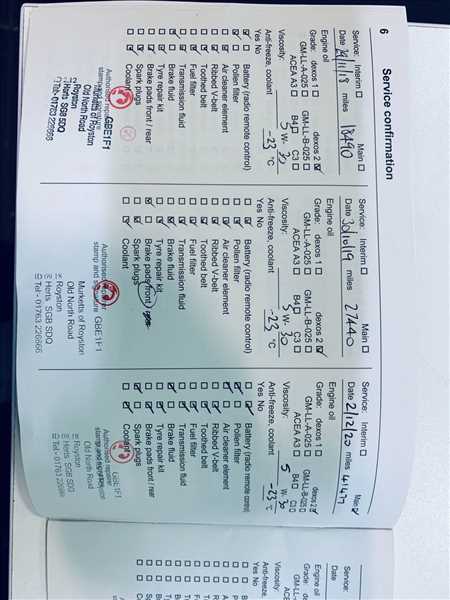 6
Service confirmation
Service: Interim ☐ Main ☐
Date 21/11/18 miles 18490
Engine oil
Grade: dexos 1 ☐ dexos 2 ☑
GM-LL-A-025 ☐ GM-LL-B-025 ☐
ACEA A3 ☐ B4 ☐ C3 ☐
Viscosity: 5 W- 30
Anti-freeze, coolant -23 °C
Yes No
Battery (radio remote control)
Pollen filter
Air cleaner element
Ribbed V-belt
Toothed belt
Fuel filter
Transmission fluid
Brake fluid
Tyre repair kit
Brake pads front / rear
Spark plugs
Coolant
Authorised repairer
stamp and signature
GBE1F1
Murketts of Royston
Old North Road
Royston
Herts SG8 5DQ
Tel: 01763 226666
Service: Interim ☐ Main ☐
Date 30/10/19 miles 27440
Engine oil
Grade: dexos 1 ☐ dexos 2 ☑
GM-LL-A-025 ☐ GM-LL-B-025 ☐
ACEA A3 ☐ B4 ☐ C3 ☐
Viscosity: 5 W- 30
Anti-freeze, coolant -23 °C
Yes No
Battery (radio remote control)
Pollen filter
Air cleaner element
Ribbed V-belt
Toothed belt
Fuel filter
Transmission fluid
Brake fluid
Tyre repair kit
Brake pads front / rear
Spark plugs
Coolant
Authorised repairer
stamp and signature
GBE1F1
Murketts of Royston
Old North Road
Royston
Herts SG8 5DQ
Tel - 01763 226666
Service: Interim ☐ Main ☑
Date 21/12/20 miles 41477
Engine oil
Grade: dexos 1 ☐ dexos 2 ☑
GM-LL-A-025 ☐ GM-LL-B-025 ☐
ACEA A3 ☐ B4 ☐ C3 ☐
Viscosity: 5 W- 30
Anti-freeze, coolant -23 °C
Yes No
Battery (radio remote control)
Pollen filter
Air cleaner element
Ribbed V-belt
Toothed belt
Fuel filter
Transmission fluid
Brake fluid
Tyre repair kit
Brake pads front / rear
Spark plugs
Coolant
Authorised repairer
stamp and signature
GbE1F1
Old North Road
Royston
Herts SG8 5DQ
Tel - 01763 226666
Service: Interim ☐
Date
Engine oil
Grade: dexos 1 ☐
GM-LL-
ACEA
Viscosity:
Anti-freeze,
Yes No
Battery
Pollen filter
Air cleaner
Ribbed V-
Toothed
Fuel filter
Transmission
Brake fluid
Tyre repair
Brake pads
Spark plugs
Coolant